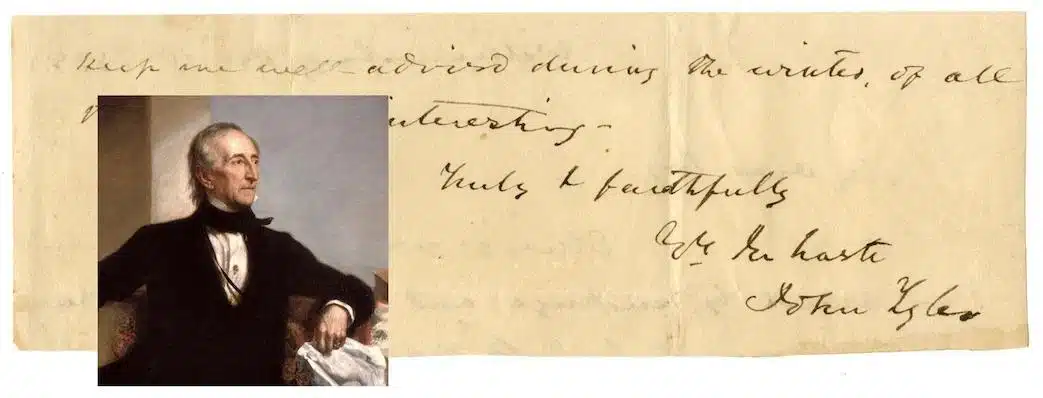 Keep me well advised during the winter, of all
interesting -
Truly & faithfully
Yrs In haste
John Tyler